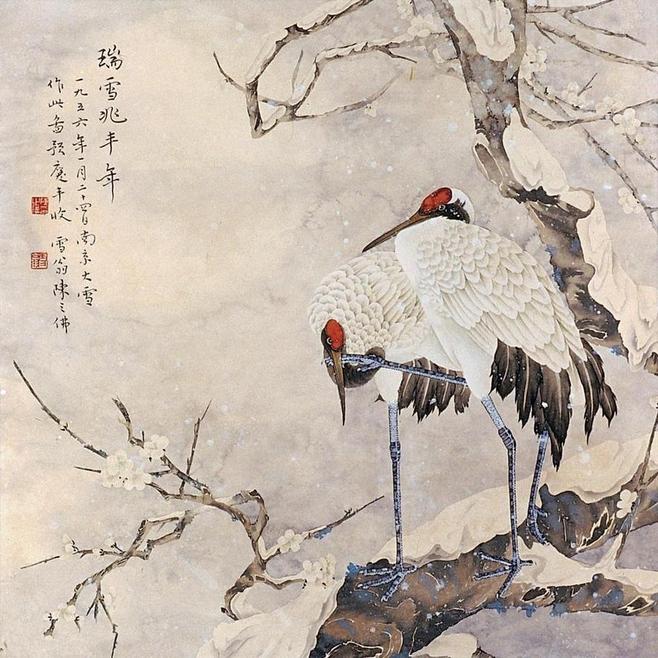 瑞雪兆丰年
一九五六年一月二十四日南京大雪
作此图预庆丰收 雪翁陈之佛